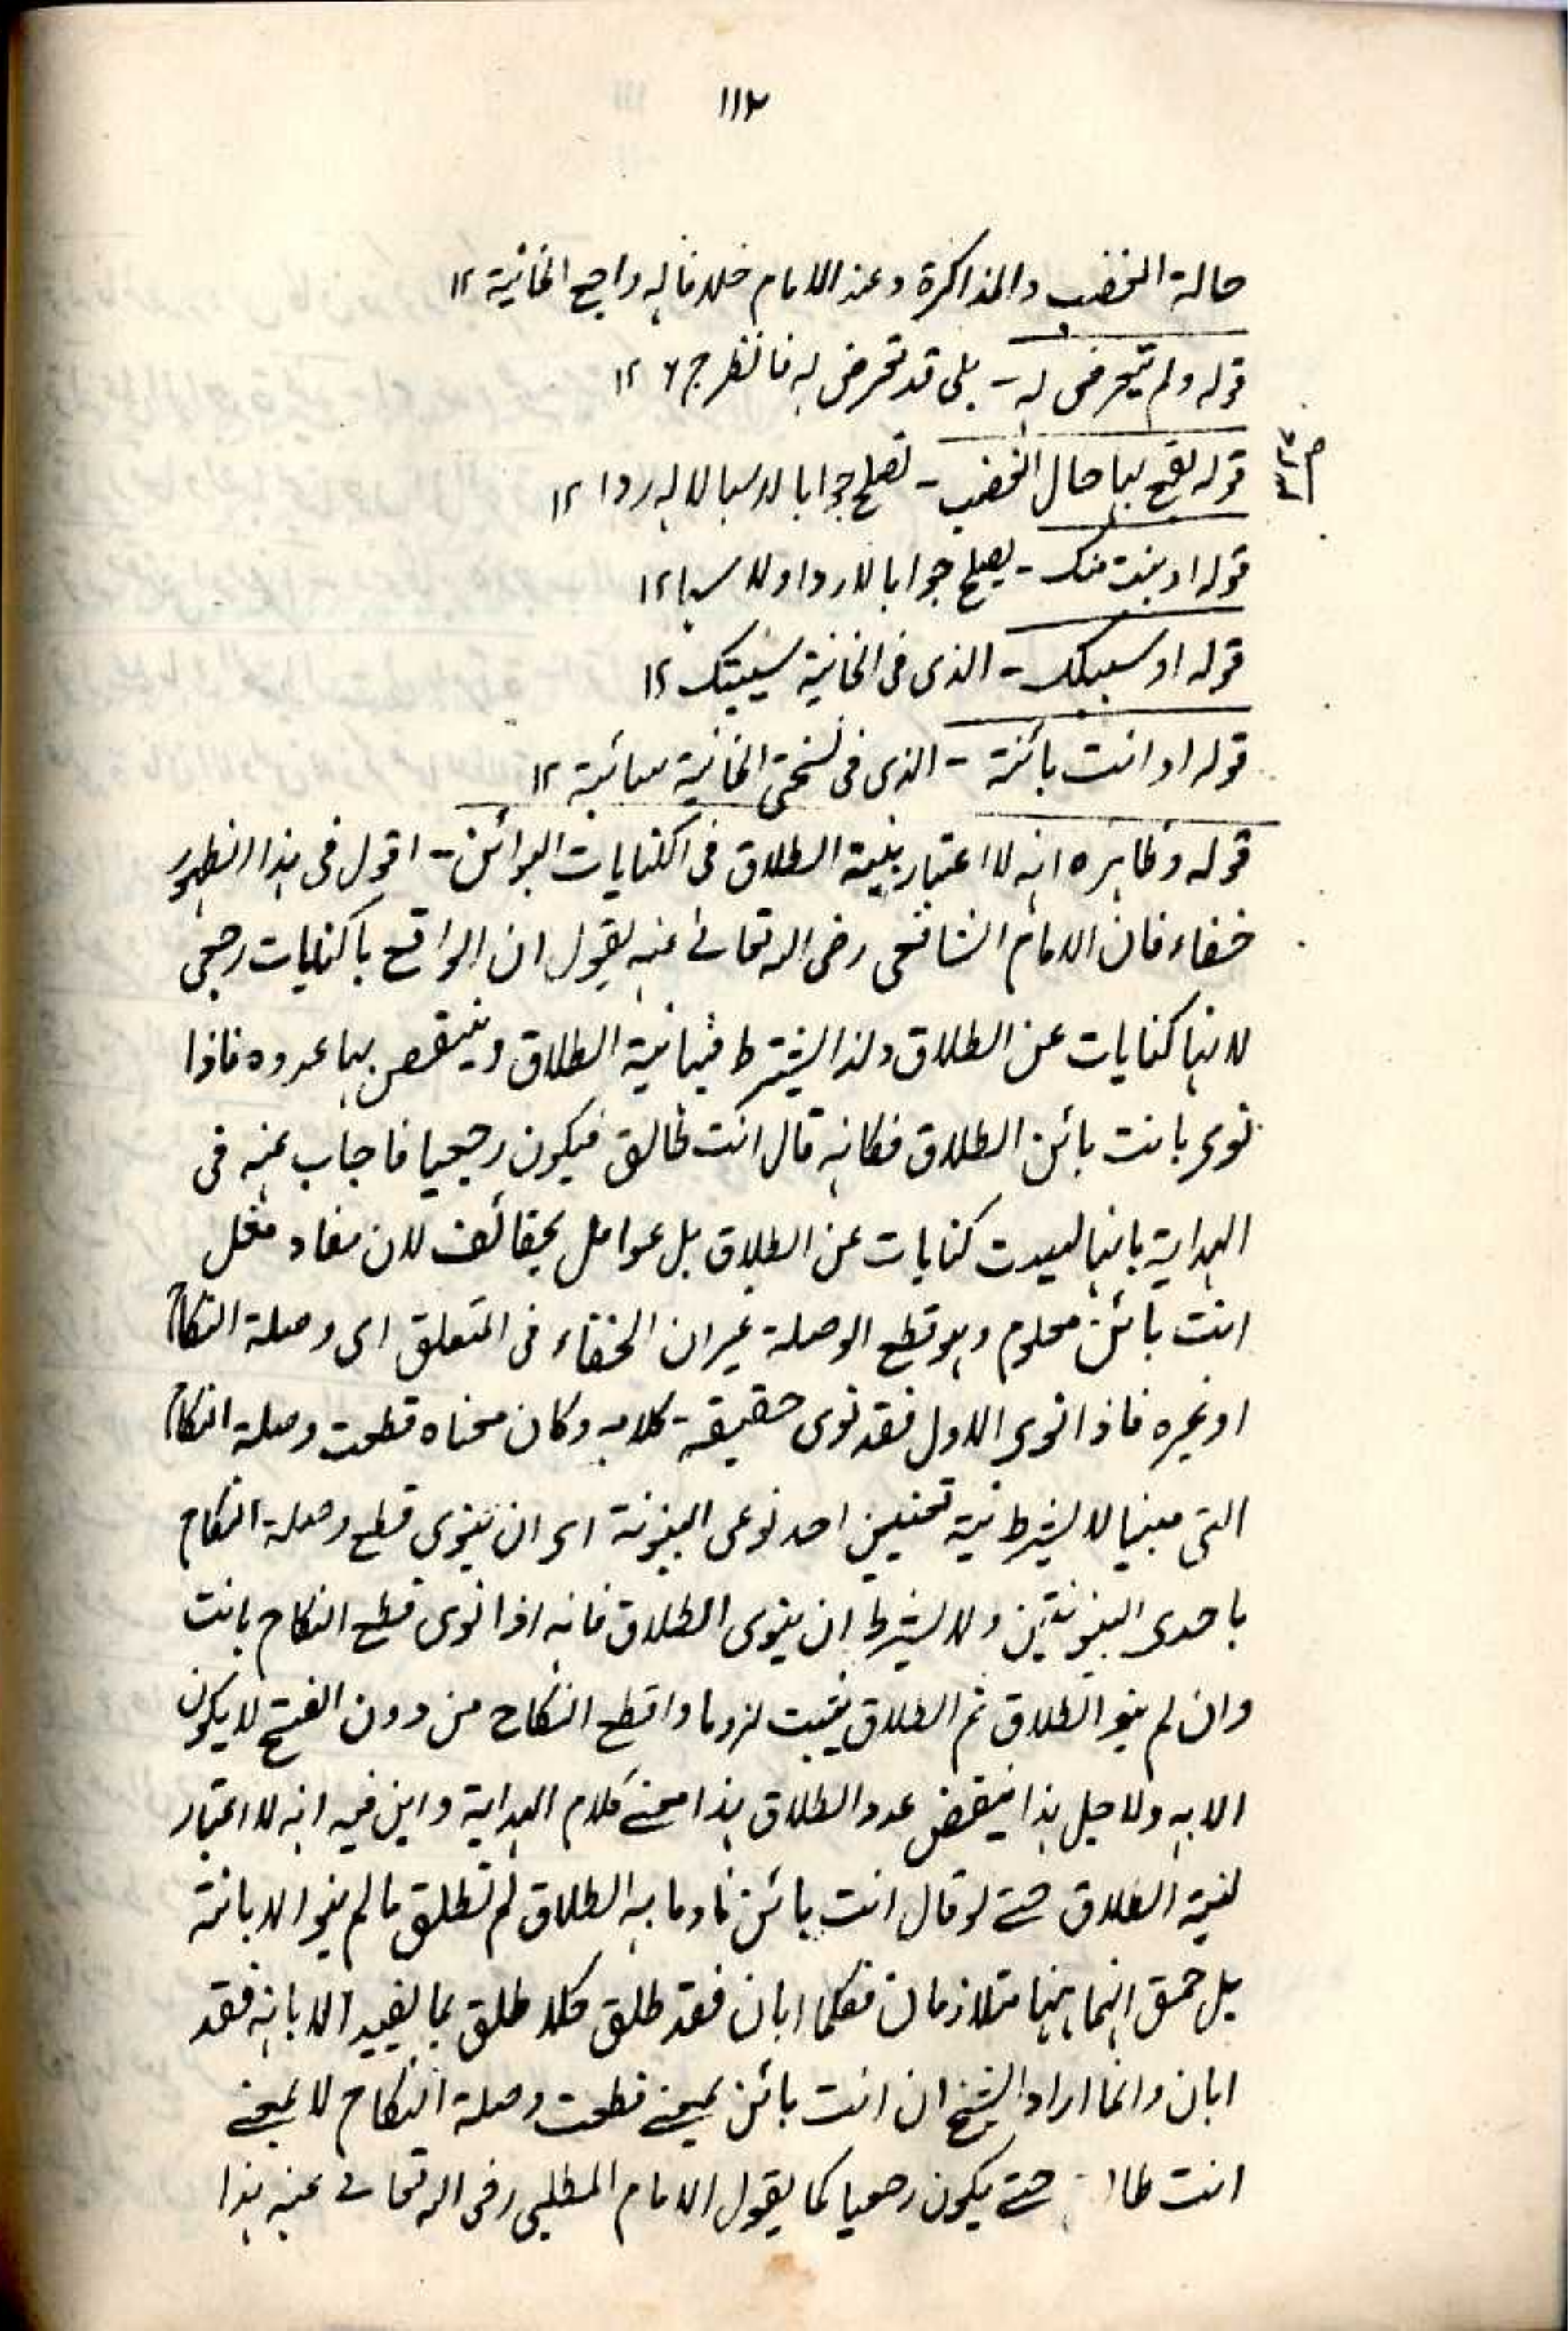 ١١٢
حالة الغضب والمذاكرة وعند الامام خلافا له راجع الخانية ١٢
قوله ولم يتعرض له - بلى قد تعرض له فانظر ج ٦ ١٢
قوله يقع بها حال الغضب - تصلح جوابا لا سبا لا له ردا ١٢
قوله او بنت منك - يصلح جوابا لا ردا ولا سبا ١٢
قوله او سيبتك - الذى فى الخانية سيبتك ١٢
قوله او انت بائنة - الذى فى نسختى الخانية سائبة ١٢
قوله وظاهره انه لا اعتبار بنية الطلاق فى الكنايات البوائن - اقول فى هذا الظهور
خفاء فان الامام الشافعى رضى الله تعالى عنه يقول ان الواقع بالكنايات رجعى
لانها كنايات عن الطلاق ولذا يشترط فيها نية الطلاق وينتقص بها عدده فاذا
نوى بانت بائن الطلاق فكانه قال انت طالق فيكون رجعيا فاجاب عنه فى
الهداية بانها ليست كنايات عن الطلاق بل عوامل بحقائقها لان مفاد مثل
انت بائن معلوم وهو قطع الوصلة غير ان الخفاء فى المتعلق اى وصلة النكاح
او غيره فاذا نوى الاول فقد نوى حقيقة كلامه وكان معناه قطعت وصلة النكاح
التى بيننا لا يشترط نية تعيين احد نوعى البينونة اى ان ينوى قطع وصلة النكاح
باحدى البينونتين ولا يشترط ان ينوى الطلاق فانه اذا نوى قطع النكاح بانت
وان لم ينو الطلاق ثم الطلاق يثبت لزوما و اقطع النكاح من دون الفسخ لا يكون
الا به ولاجل هذا ينتقص عدد الطلاق هذا معنى كلام الهداية واين فيه انه لا اعتبار
لنية الطلاق حتى لو قال انت بائن ناويا به الطلاق لم تطلق ما لم ينو الابانة
بل حقق انهما ههنا متلازمان فكلما ابان فقد طلق وكلما طلق بما يفيد الابانة فقد
ابان وانما اراد الشيخ ان انت بائن بمعنى قطعت وصلة النكاح لا بمعنى
انت طا حتى يكون رجعيا كما يقول الامام المطلبى رضى الله تعالى عنه هذا